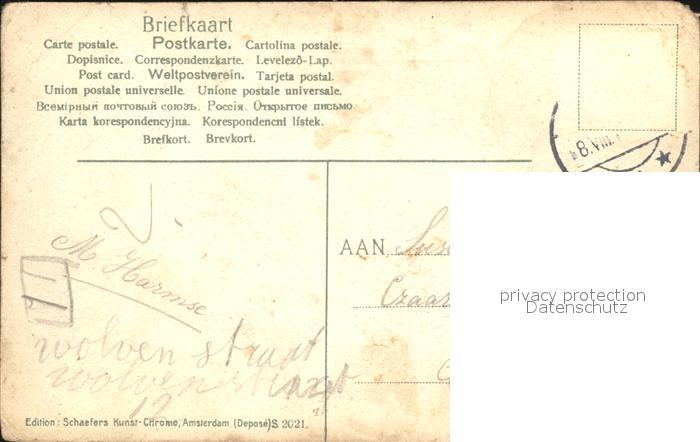 Briefkaart
Carte postale. Postkarte. Cartolina postale.
Dopisnice. Correspondenzkarte. Levelező-Lap.
Post card. Weltpostverein. Tarjeta postal.
Union postale universelle. Unione postale universale.
Всемірный почтовый союзъ. Россія. Открытое письмо
Karta korespondencyjna. Korespondencni lístek.
Brefkort. Brevkort.
8.VIII.
M Harmse
AAN
Czaar
privacy protection
Datenschutz
wolven straat
wolvenstraat
12
Edition: Schaefers Kunst-Chromo, Amsterdam (Deposé) S 2021.